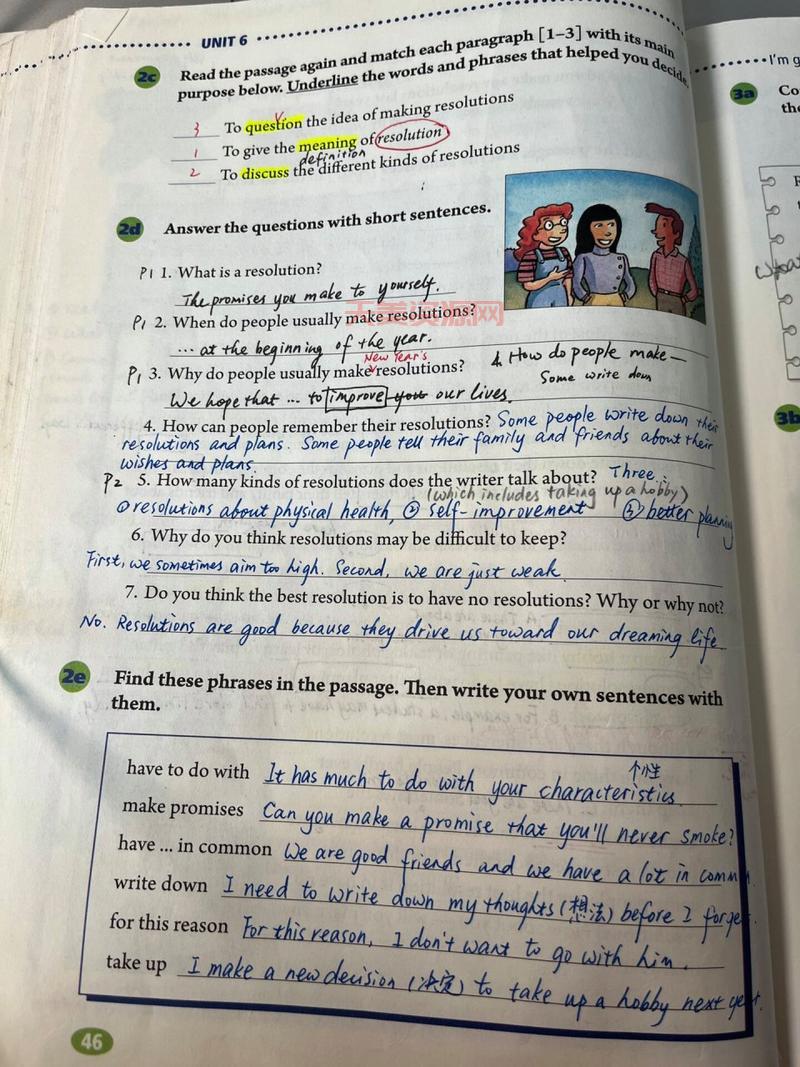 UNIT 6
I'm g
2c Read the passage again and match each paragraph [1–3] with its main
purpose below. Underline the words and phrases that helped you decide.
3 To question the idea of making resolutions
v
1 To give the meaning of resolution
definition
2 To discuss the different kinds of resolutions
2d Answer the questions with short sentences.
P1 1. What is a resolution?
The promises you make to yourself.
P1 2. When do people usually make resolutions?
... at the beginning of the year.
New Year's
P1 3. Why do people usually make resolutions?
4. How do people make—
Some write down
We hope that ... to improve you our lives.
4. How can people remember their resolutions? Some people write down their
resolutions and plans. Some people tell their family and friends about their
wishes and plans.
P2 5. How many kinds of resolutions does the writer talk about? Three:
(which includes taking up a hobby)
① resolutions about physical health, ② self-improvement ③ better planning
6. Why do you think resolutions may be difficult to keep?
First, we sometimes aim too high. Second, we are just weak.
7. Do you think the best resolution is to have no resolutions? Why or why not?
No. Resolutions are good because they drive us toward our dreaming life
2e Find these phrases in the passage. Then write your own sentences with
them.
个性
have to do with It has much to do with your characteristics.
make promises Can you make a promise that you'll never smoke?
have ... in common We are good friends and we have a lot in common.
write down I need to write down my thoughts (想法) before I forget.
for this reason For this reason, I don't want to go with him.
take up I make a new decision (决定) to take up a hobby next year.
46
3a Co
the
3b